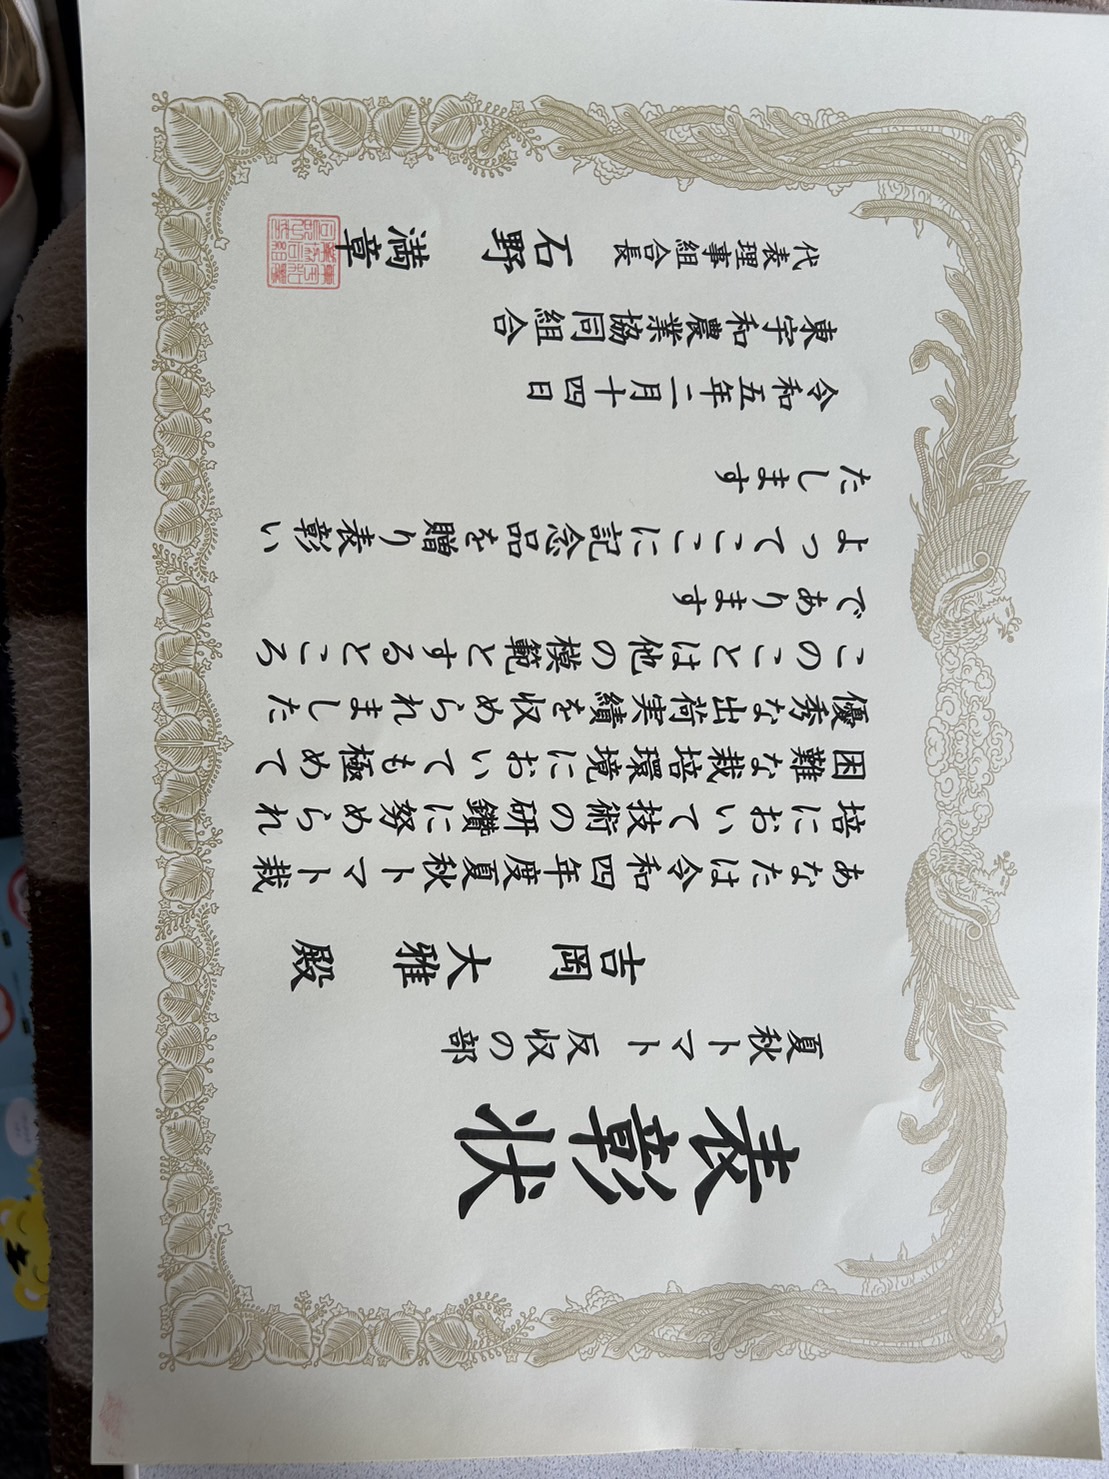 表彰状
夏秋トマト反収の部
吉岡大雅殿
あなたは令和四年度夏秋トマト栽
培において技術の研鑽に努められ
困難な栽培環境においても極めて
優秀な出荷実績を収められました
このことは他の模範とするところ
であります
よってここに記念品を贈り表彰い
たします
令和五年二月十四日
東宇和農業協同組合
代表理事組合長 石野満章